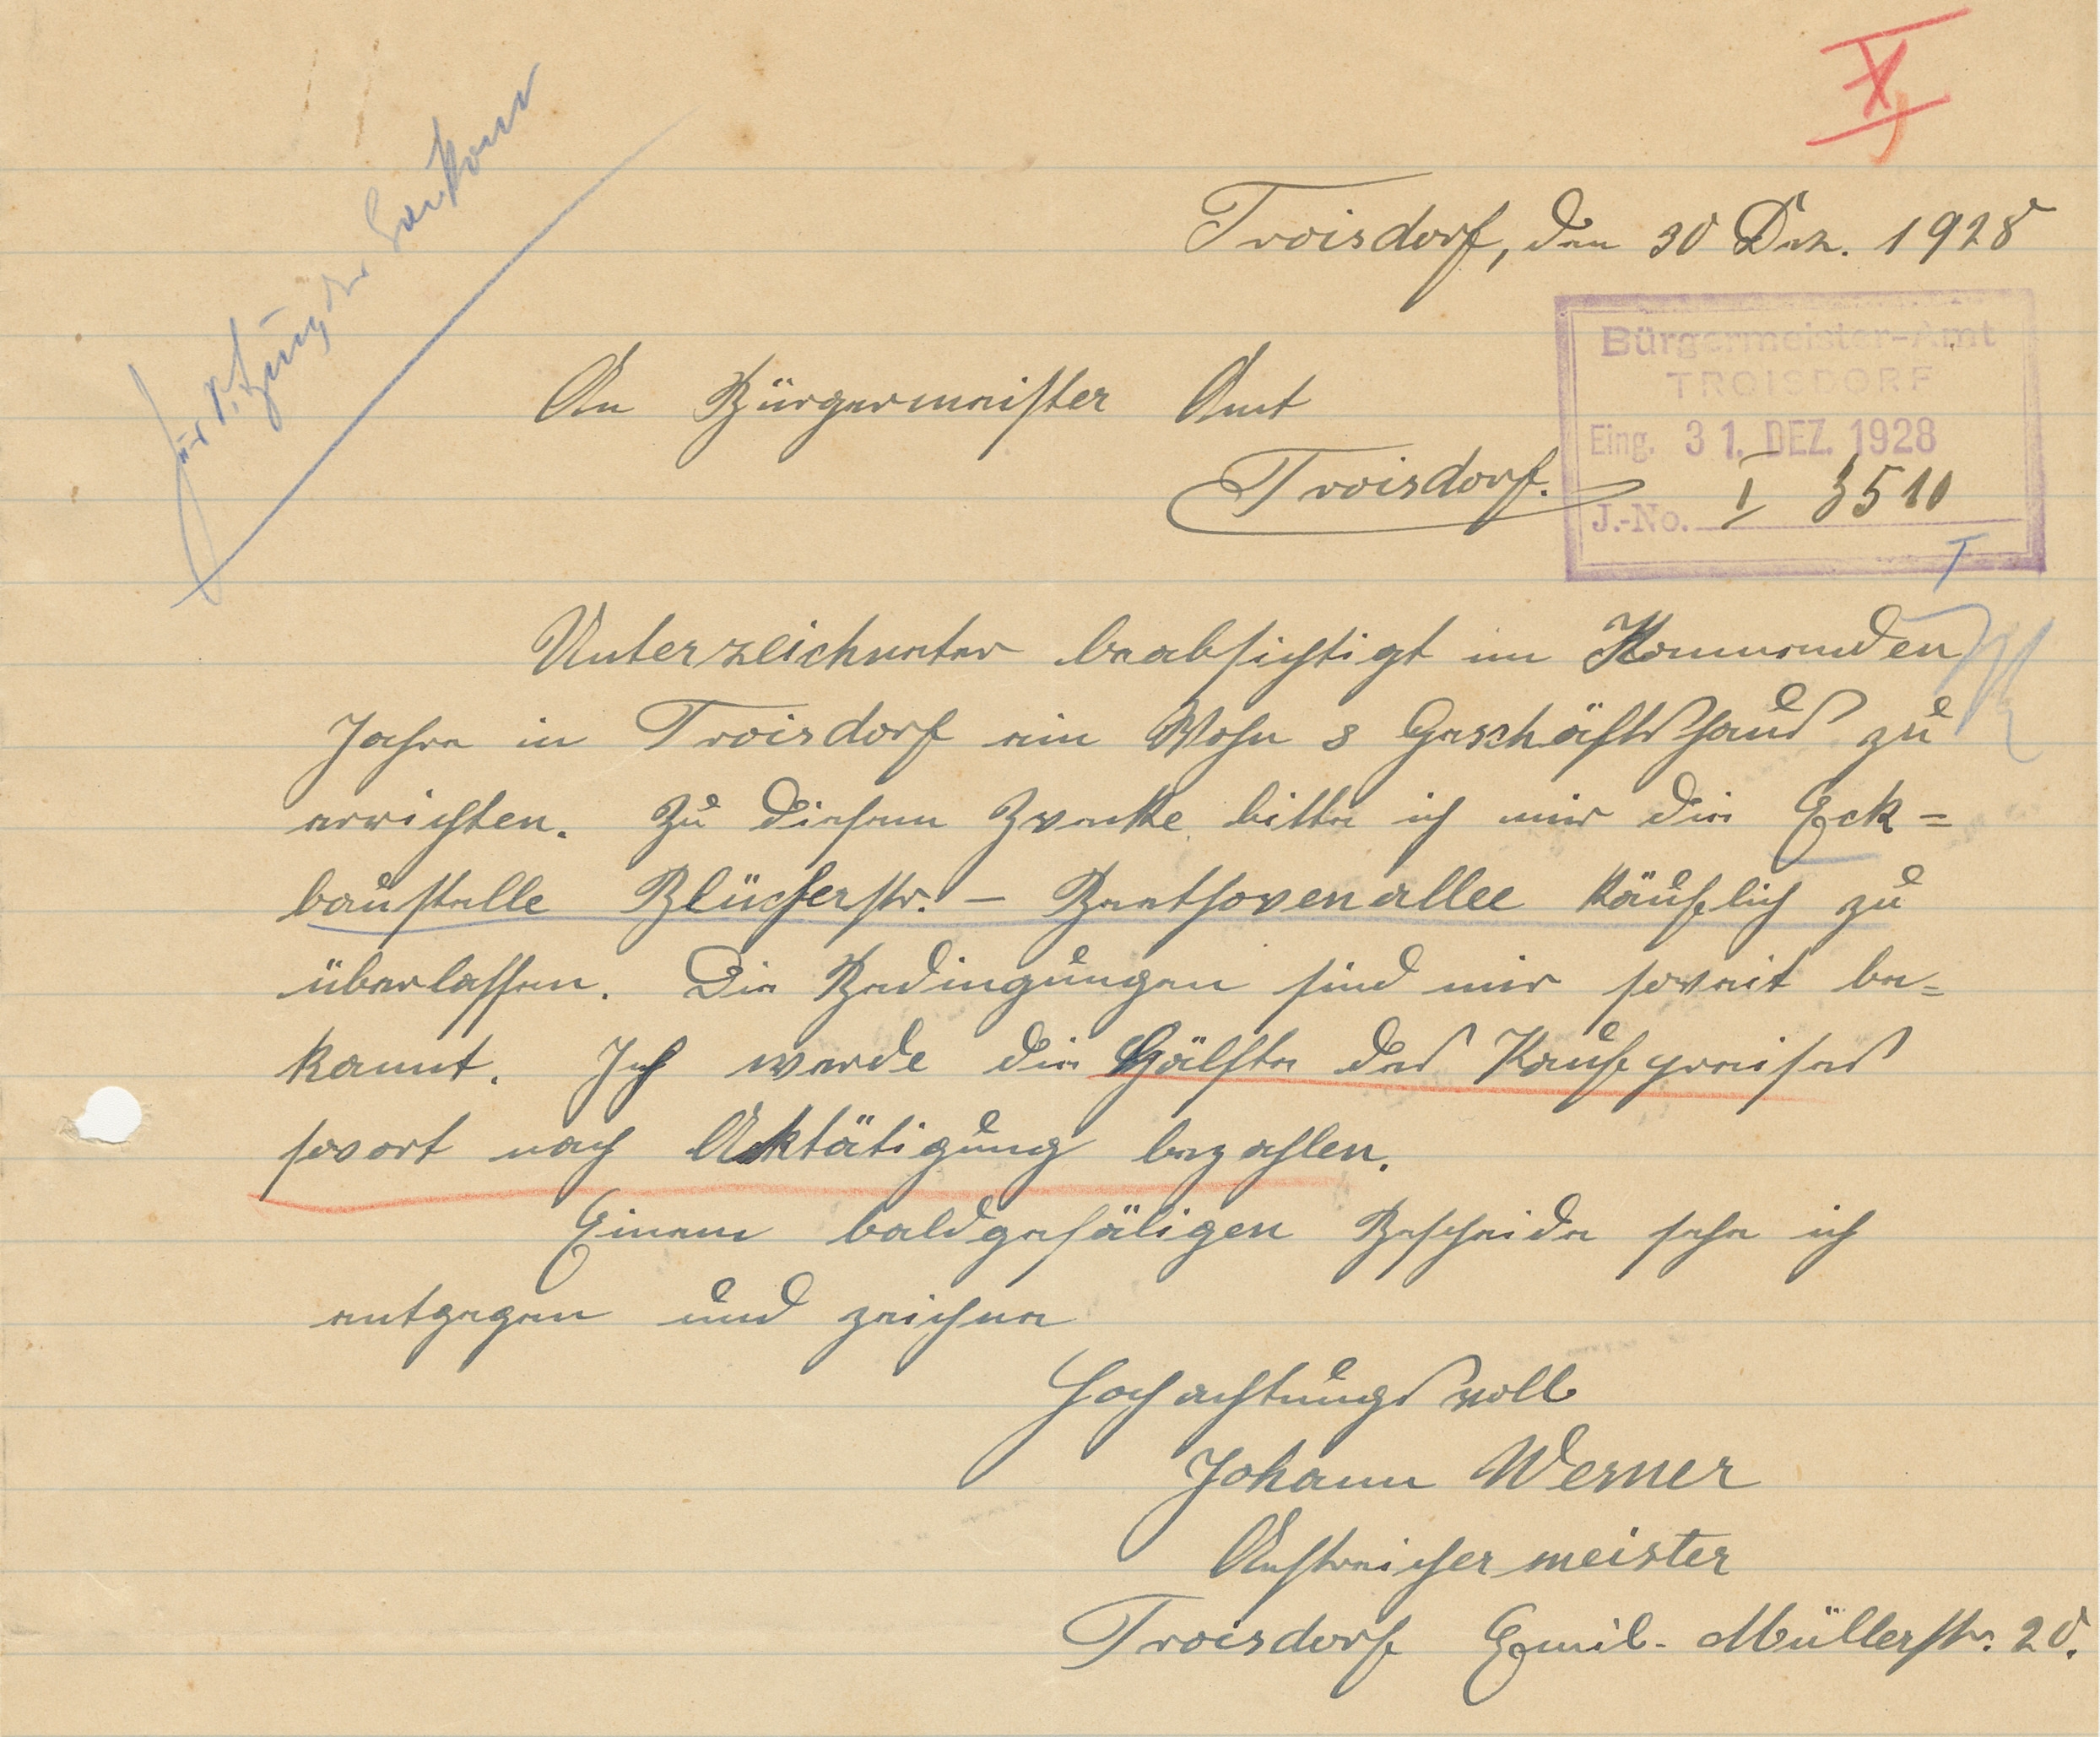 Troisdorf, den 30 Dez. 1928
Bürgermeister-Amt
TROISDORF
Eing. 31. DEZ. 1928
J.-No. I 3510
An Bürgermeister Amt
Troisdorf.
Unterzeichneter beabsichtigt im Kommenden
Jahre in Troisdorf ein Wohn & Geschäftshaus zu
errichten. Zu diesem Zwecke bitte ich mir die Eck=
baustelle Blücherstr. – Beethovenallee käuflich zu
überlassen. Die Bedingungen sind mir soweit be=
kannt. Ich werde die Hälfte des Kaufpreises
sovort nach Aktätigung bezahlen.
Einem baldgefäligen Bescheide sehe ich
entgegen und zeichne
Hochachtungsvoll
Johann Werner
Anstreichermeister
Troisdorf Emil-Müllerstr. 20.